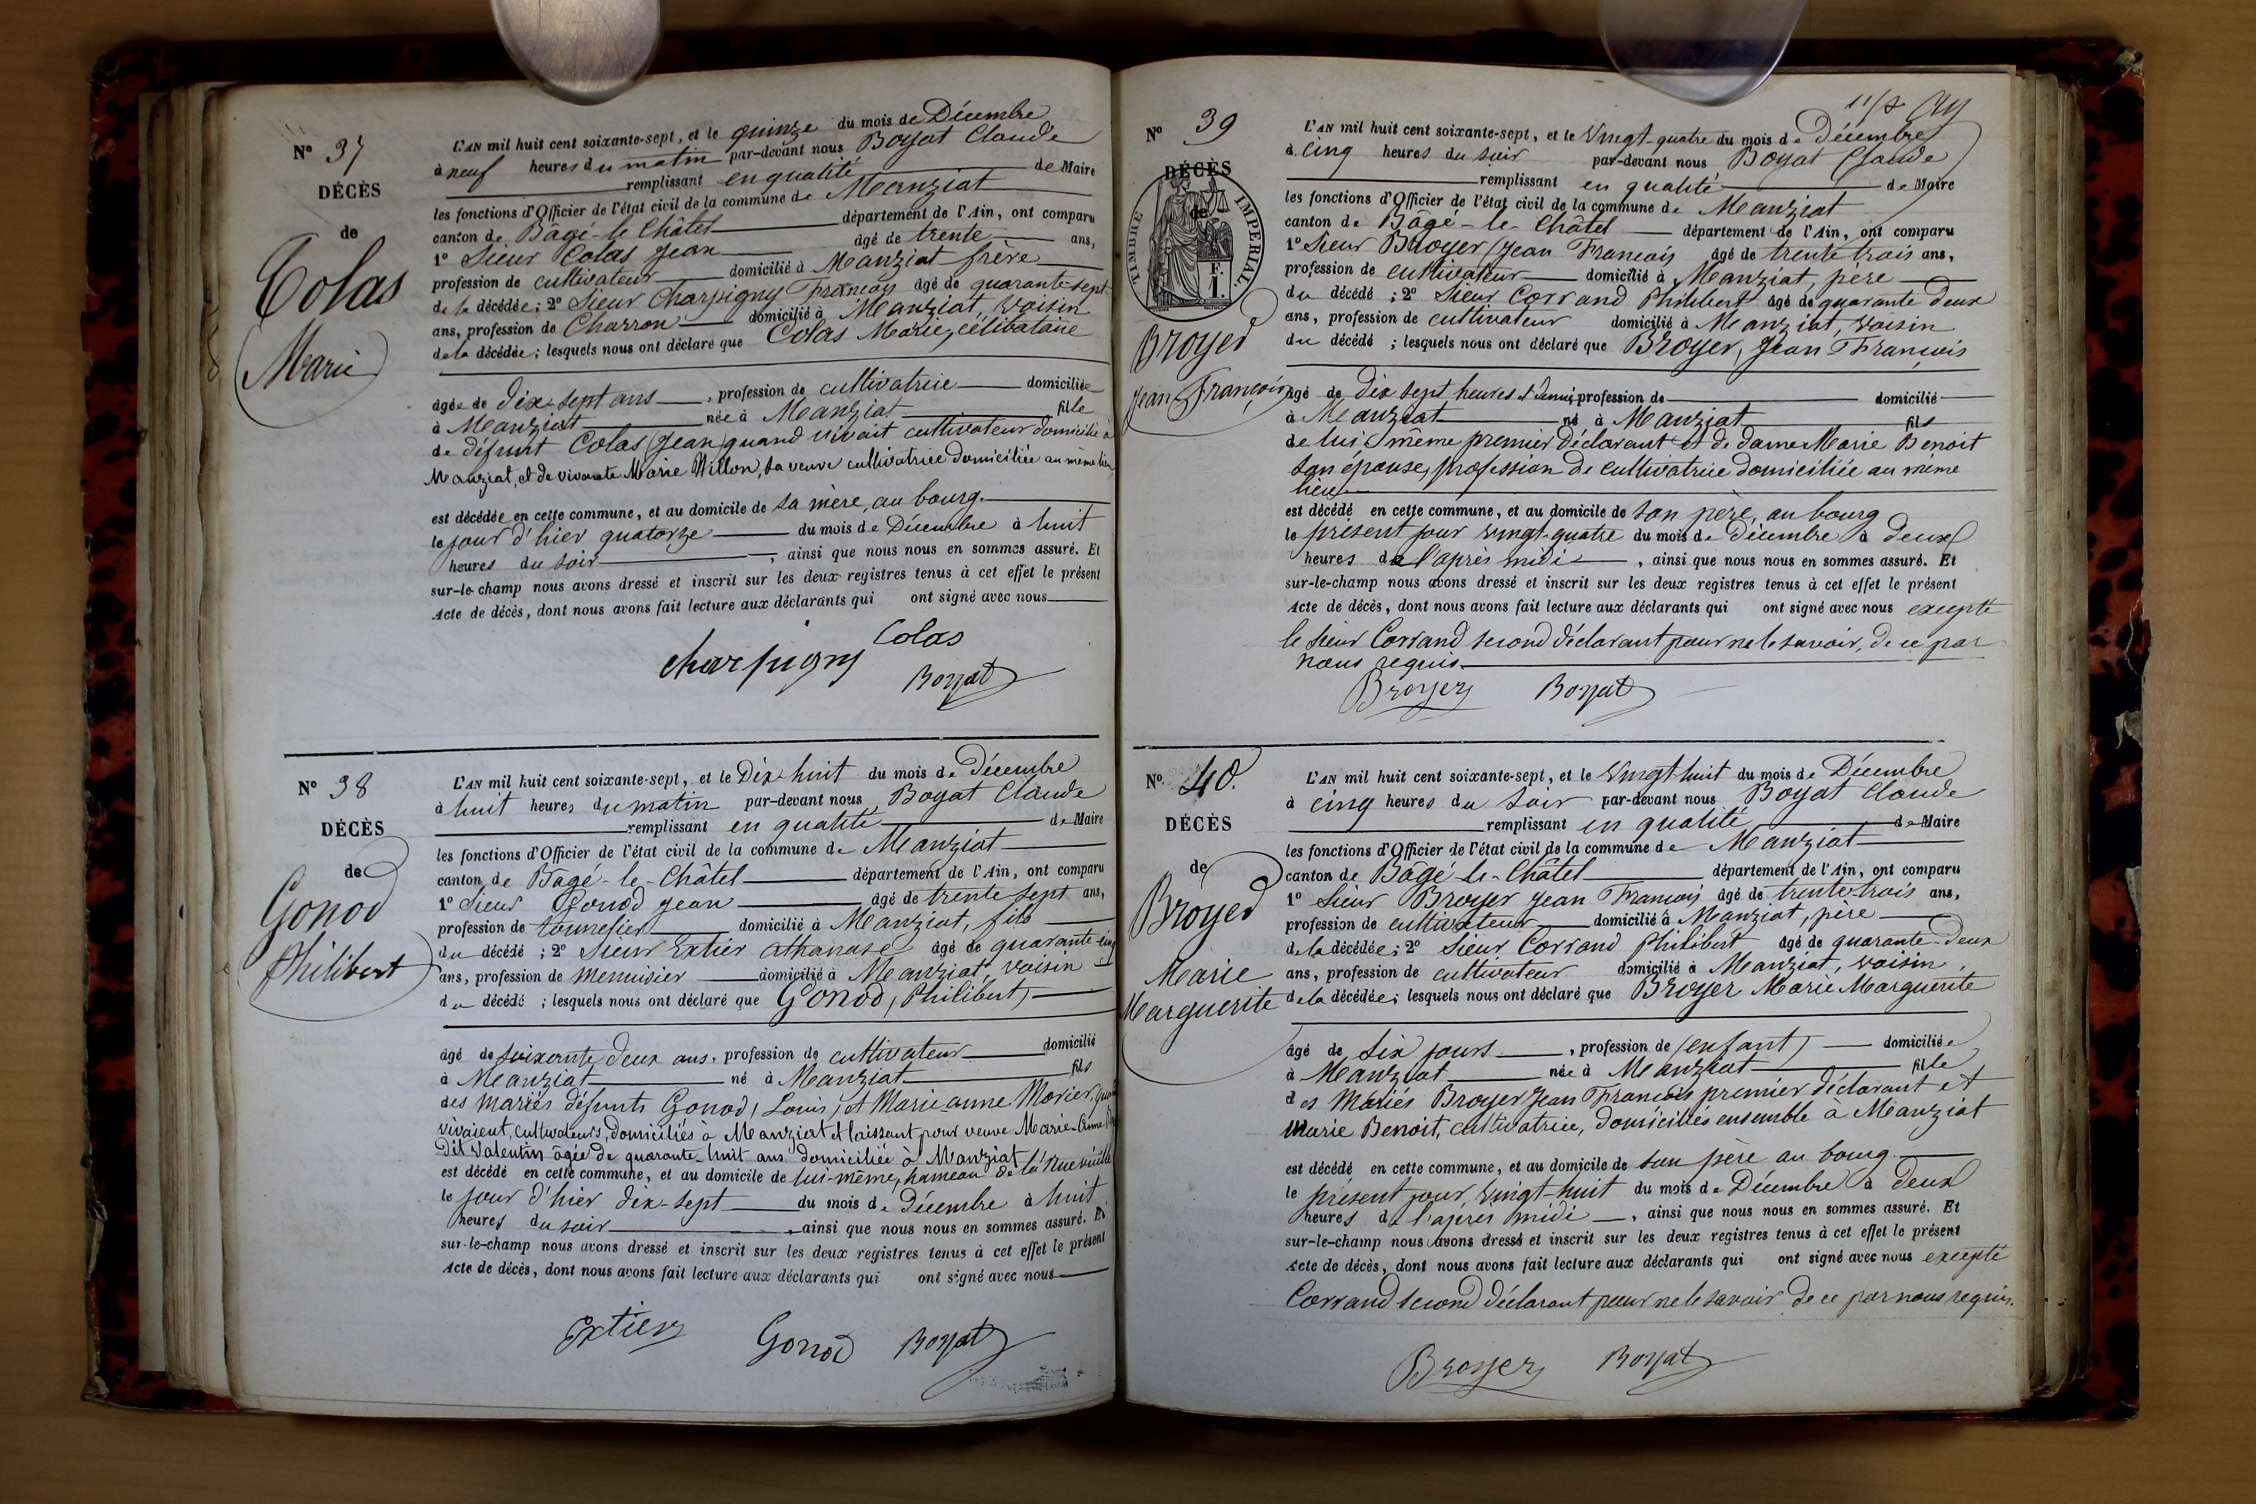 N° 37
DÉCÈS
de
Colas
Marie
L'AN mil huit cent soixante-sept, et le quinze du mois de Décembre
à neuf heures du matin par-devant nous Boyat Claude
remplissant en qualité de Maire
les fonctions d'Officier de l'état civil de la commune de Manziat
canton de Bâgé-le-Châtel département de l'Ain, ont comparu
1° Sieur Colas Jean âgé de trente ans,
profession de cultivateur domicilié à Manziat frère
de la décédée; 2° Sieur Charpigny François âgé de quarante-sept
ans, profession de Charron domicilié à Manziat, voisin
de la décédée; lesquels nous ont déclaré que Colas Marie, célibataire
âgée de dix-sept ans, profession de cultivatrice domiciliée
à Manziat née à Manziat fille
de défunt Colas (Jean) quand vivait cultivateur domicilié à
Manziat, et de vivante Marie Willon, sa veuve cultivatrice domiciliée au même lieu,
est décédée en cette commune, et au domicile de sa mère, au bourg.
le jour d'hier quatorze du mois de Décembre à huit
heures du soir, ainsi que nous nous en sommes assuré. Et
sur-le-champ nous avons dressé et inscrit sur les deux registres tenus à cet effet le présent
Acte de décès, dont nous avons fait lecture aux déclarants qui ont signé avec nous
Colas
Charpigny
Boyat
N° 38
DÉCÈS
de
Gonod
Philibert
L'AN mil huit cent soixante-sept, et le Dix-huit du mois de Décembre
à huit heures du matin par-devant nous Boyat Claude
remplissant en qualité de Maire
les fonctions d'Officier de l'état civil de la commune de Manziat
canton de Bâgé-le-Châtel département de l'Ain, ont comparu
1° Sieur Gonod Jean âgé de trente sept ans,
profession de tonnelier domicilié à Manziat, fils
du décédé; 2° Sieur Extier Athanase âgé de quarante-cinq
ans, profession de menuisier domicilié à Manziat, voisin
du décédé; lesquels nous ont déclaré que Gonod, Philibert,
âgé de soixante deux ans, profession de cultivateur domicilié
à Manziat né à Manziat fils
des mariés défunts Gonod, Louis, et Marie anne Morier, quand
vivaient, cultivateurs, domiciliés à Manziat et laissant pour veuve Marie-Anne
Dit Valentin âgée de quarante-huit ans domiciliée à Manziat
est décédé en cette commune, et au domicile de lui-même, hameau de la
le jour d'hier dix-sept du mois de Décembre à huit
heures du soir, ainsi que nous nous en sommes assuré. Et
sur-le-champ nous avons dressé et inscrit sur les deux registres tenus à cet effet le présent
Acte de décès, dont nous avons fait lecture aux déclarants qui ont signé avec nous
Extier Gonod Boyat
N° 39
DÉCÈS
de
TIMBRE IMPÉRIAL
Broyer
Jean François
L'AN mil huit cent soixante-sept, et le Vingt-quatre du mois de Décembre
à cinq heures du soir par-devant nous Boyat Claude
remplissant en qualité de Maire
les fonctions d'Officier de l'état civil de la commune de Manziat
canton de Bâgé-le-Châtel département de l'Ain, ont comparu
1° Sieur Broyer (Jean François âgé de trente trois ans,
profession de cultivateur domicilié à Manziat, père
du décédé; 2° Sieur Corrand Philibert âgé de quarante deux
ans, profession de cultivateur domicilié à Manziat, voisin
du décédé; lesquels nous ont déclaré que Broyer, Jean François
âgé de dix sept heures et demie, profession de domicilié
à Manziat né à Manziat fils
de lui même premier déclarant et de dame Marie Benoit
son épouse, profession de cultivatrice domiciliée au même
lieu
est décédé en cette commune, et au domicile de son père, au bourg
le présent jour vingt-quatre du mois de Décembre à deux
heures de l'après midi, ainsi que nous nous en sommes assuré. Et
sur-le-champ nous avons dressé et inscrit sur les deux registres tenus à cet effet le présent
Acte de décès, dont nous avons fait lecture aux déclarants qui ont signé avec nous excepté
le sieur Corrand second déclarant pour ne le savoir, de ce par
nous requis
Broyer Boyat
N° 40.
DÉCÈS
de
Broyer
Marie
Marguerite
L'AN mil huit cent soixante-sept, et le Vingt huit du mois de Décembre
à cinq heures du soir par-devant nous Boyat Claude
remplissant en qualité de Maire
les fonctions d'Officier de l'état civil de la commune de Manziat
canton de Bâgé-le-Châtel département de l'Ain, ont comparu
1° Sieur Broyer Jean François âgé de trente-trois ans,
profession de cultivateur domicilié à Manziat, père
de la décédée; 2° Sieur Corrand Philibert âgé de quarante-deux
ans, profession de cultivateur domicilié à Manziat, voisin
de la décédée; lesquels nous ont déclaré que Broyer Marie Marguerite
âgé de six jours, profession de (enfant) domiciliée
à Manziat née à Manziat fille
des Mariés Broyer Jean François premier déclarant et
Marie Benoit, cultivatrice, domiciliés ensemble à Manziat
est décédé en cette commune, et au domicile de son père au bourg
le présent jour, vingt-huit du mois de Décembre à deux
heures de l'après midi, ainsi que nous nous en sommes assuré. Et
sur-le-champ nous avons dressé et inscrit sur les deux registres tenus à cet effet le présent
Acte de décès, dont nous avons fait lecture aux déclarants qui ont signé avec nous excepté
Corrand second déclarant pour ne le savoir de ce par nous requis.
Broyer Boyat